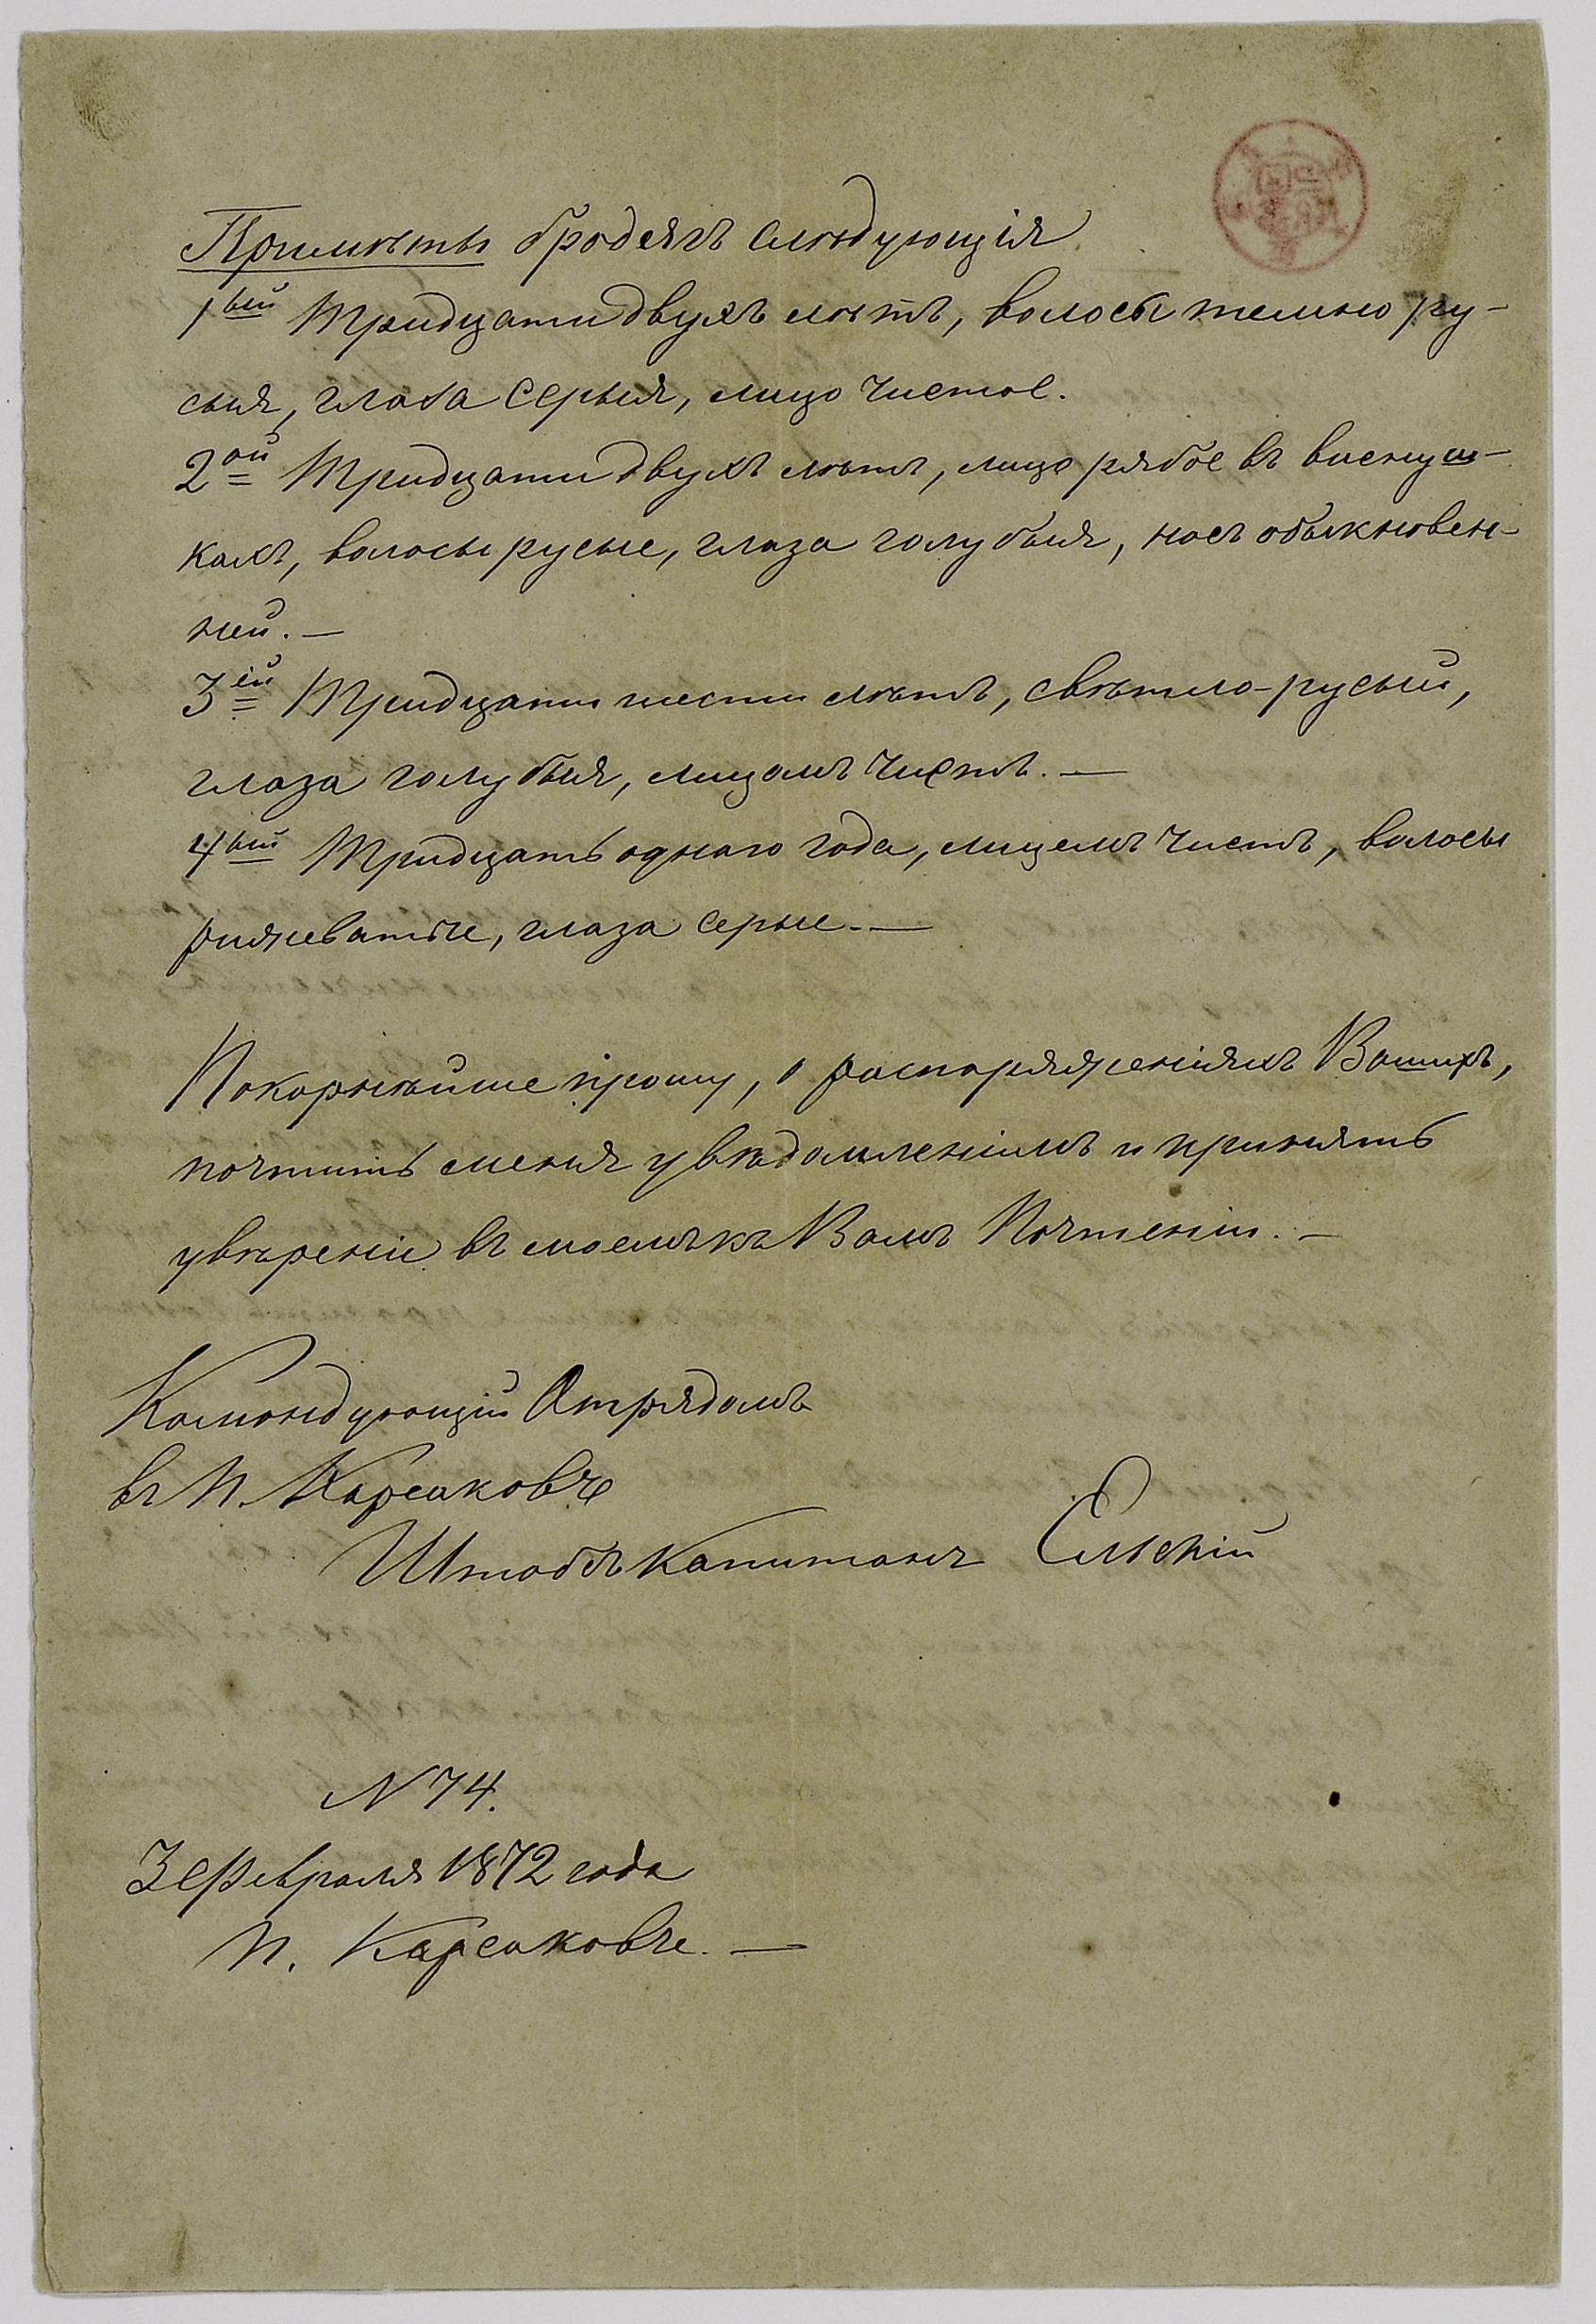 Примѣты бродягъ слѣдующія
1ый Тридцати двухъ лѣтъ, волосы темно ру-
сыя, глаза серыя, лицо чистое.
2ой Тридцати двухъ лѣтъ, лицо рябое въ виснуш-
кахъ, волосы русые, глаза голубыя, носъ обыкновен-
ней. —
3ій Тридцати шести лѣтъ, свѣтло-русый,
глаза голубыя, лицомъ чистъ. —
4ый Тридцать одного года, лицемъ чистъ, волосы
рижеватые, глаза серые. —
Покорнѣйше прошу, о распоряженіяхъ Вашихъ,
почтить меня увѣдомленіимъ и принять
увѣреніе въ моемъ къ Вамъ Почтеніи. —
Командующій Отрядомъ
въ П. Карсаковѣ
Штабсъ Капитанъ Ельскій
N 74.
3 Февраля 1872 года
П. Карсаковѣ. —